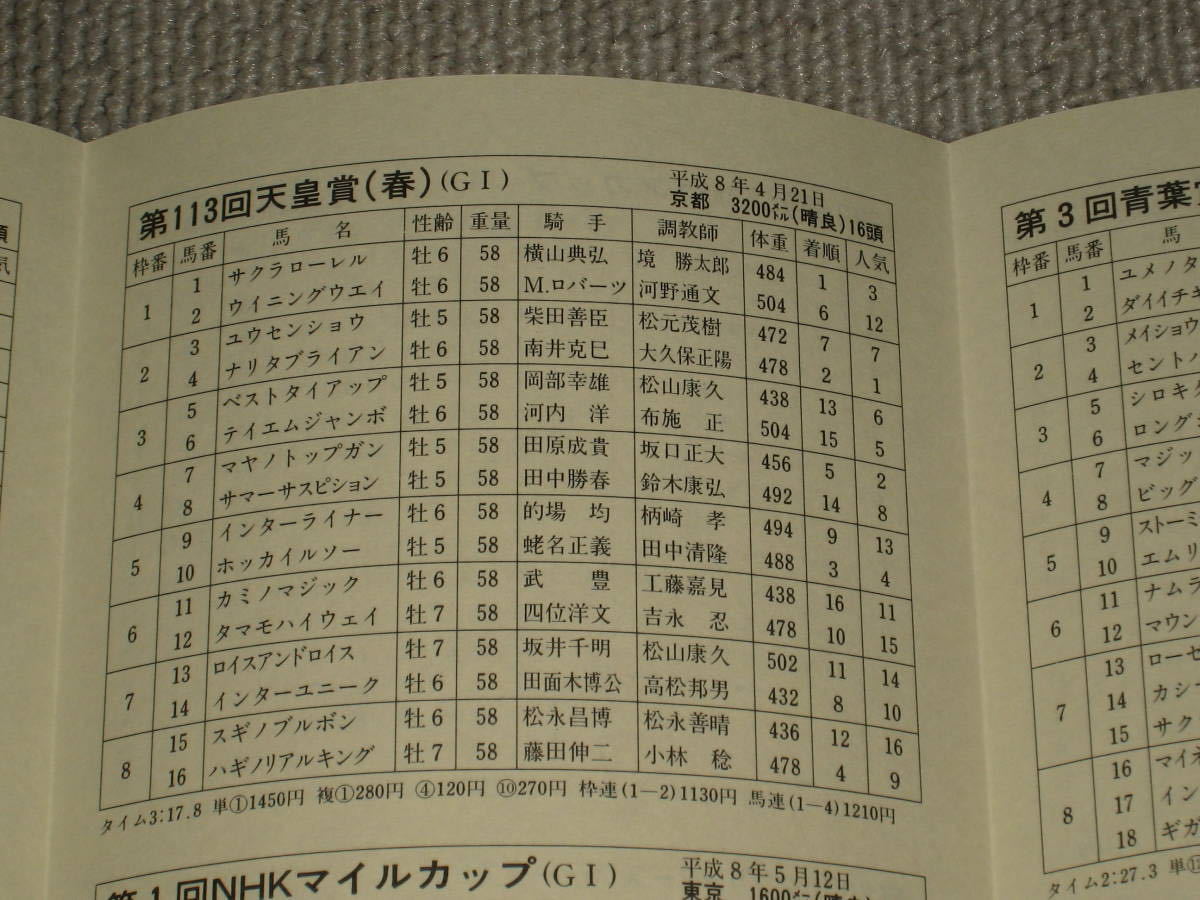 第113回天皇賞(春)(GI) 平成8年4月21日
京都 3200㍍(晴良)16頭
枠番 馬番 馬名 性齢 重量 騎手 調教師 体重 着順 人気
1 1 サクラローレル 牡6 58 横山典弘 境勝太郎 484 1 3
2 ウイニングウエイ 牡6 58 M.ロバーツ 河野通文 504 6 12
2 3 ユウセンショウ 牡5 58 柴田善臣 松元茂樹 472 7 7
4 ナリタブライアン 牡6 58 南井克巳 大久保正陽 478 2 1
3 5 ベストタイアップ 牡5 58 岡部幸雄 松山康久 438 13 6
6 テイエムジャンボ 牡6 58 河内洋 布施正 504 15 5
4 7 マヤノトップガン 牡5 58 田原成貴 坂口正大 456 5 2
8 サマーサスピション 牡5 58 田中勝春 鈴木康弘 492 14 8
5 9 インターライナー 牡6 58 的場均 柄崎孝 494 9 13
10 ホッカイルソー 牡5 58 蛯名正義 田中清隆 488 3 4
6 11 カミノマジック 牡6 58 武豊 工藤嘉見 438 16 11
12 タマモハイウェイ 牡7 58 四位洋文 吉永忍 478 10 15
7 13 ロイスアンドロイス 牡7 58 坂井千明 松山康久 502 11 14
14 インターユニーク 牡6 58 田面木博公 高松邦男 432 8 10
8 15 スギノブルボン 牡6 58 松永昌博 松永善晴 436 12 16
16 ハギノリアルキング 牡7 58 藤田伸二 小林稔 478 4 9
タイム3:17.8 単①1450円 複①280円 ④120円 ⑩270円 枠連(1―2)1130円 馬連(1―4)1210円
第1回NHKマイルカップ(GI) 平成8年5月12日
東京 1600㍍(晴良)
第3回青葉
枠番 馬番 馬
1 1 ユメノタ
2 ダイイチキ
2 3 メイショウ
4 セントバ
3 5 シロキタ
6 ロング
4 7 マジッ
8 ビッグ
5 9 ストーミ
10 エムリ
6 11 ナムラ
12 マウン
7 13 ローゼ
14 カシマ
15 サク
8 16 マイネ
17 イン
18 ギガ
タイム2:27.3 単
頭
気